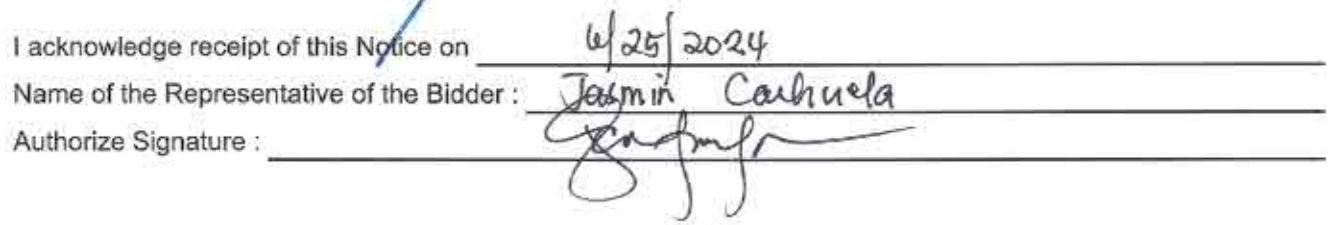 I acknowledge receipt of this Notice on 6/25/2024
Name of the Representative of the Bidder : Jasmin
Authorize Signature :